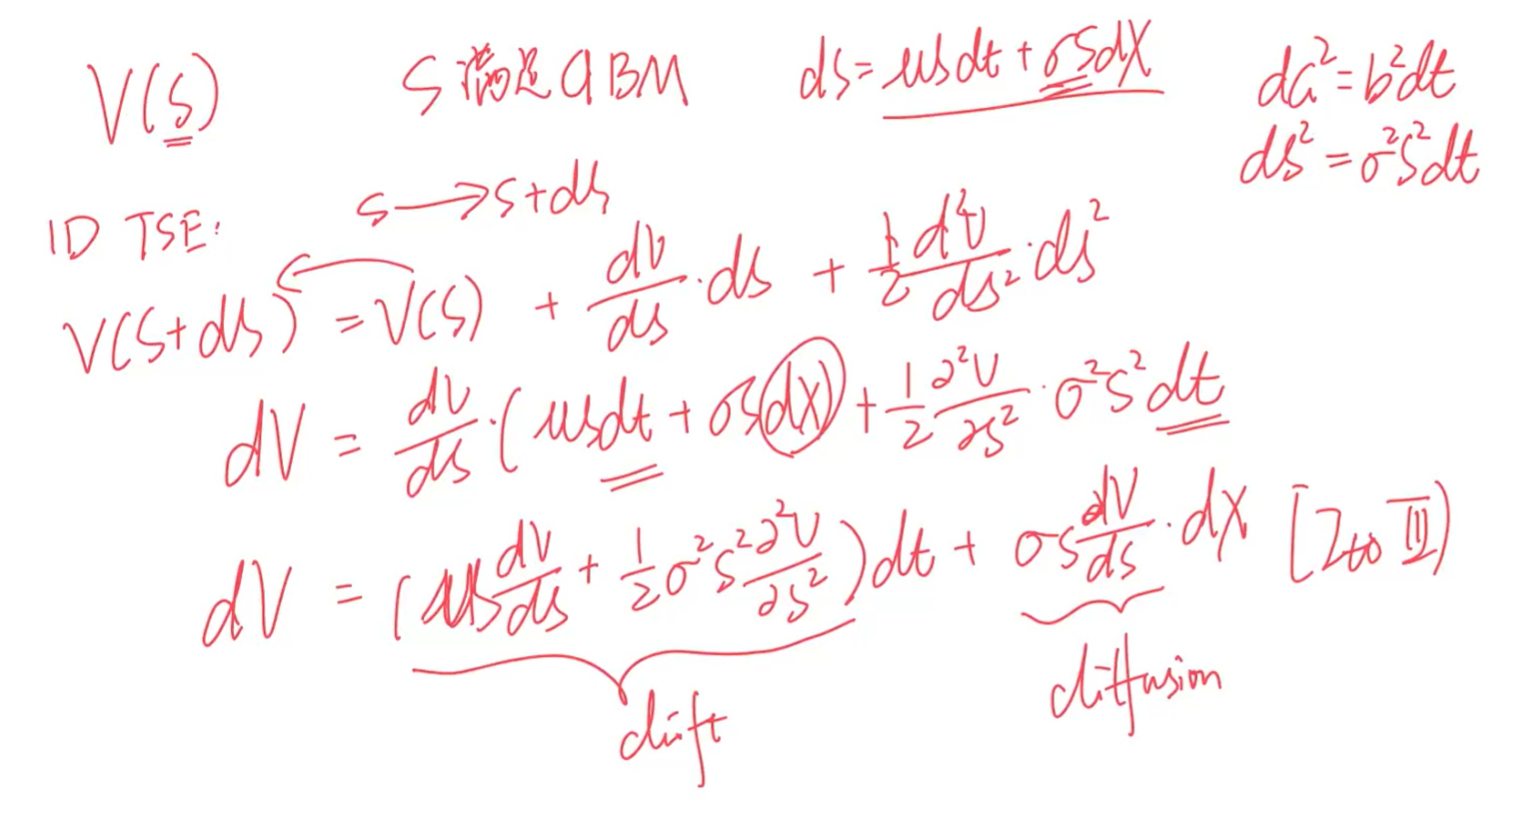 V(S) S满足GBM dS = μSdt + σSdX dG² = b²dt
dS² = σ²S²dt
S → S+dS
1D TSE:
V(S+dS) = V(S) + dV/dS · dS + 1/2 d²V/dS² · dS²
dV = dV/dS · (μSdt + σSdX) + 1/2 ∂²V/∂S² · σ²S²dt
dV = (μS dV/dS + 1/2 σ²S² ∂²V/∂S²)dt + σS dV/dS · dX [Ito III]
drift diffusion